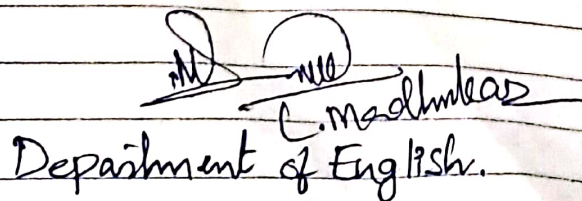 C. Madhukar
Department of English.